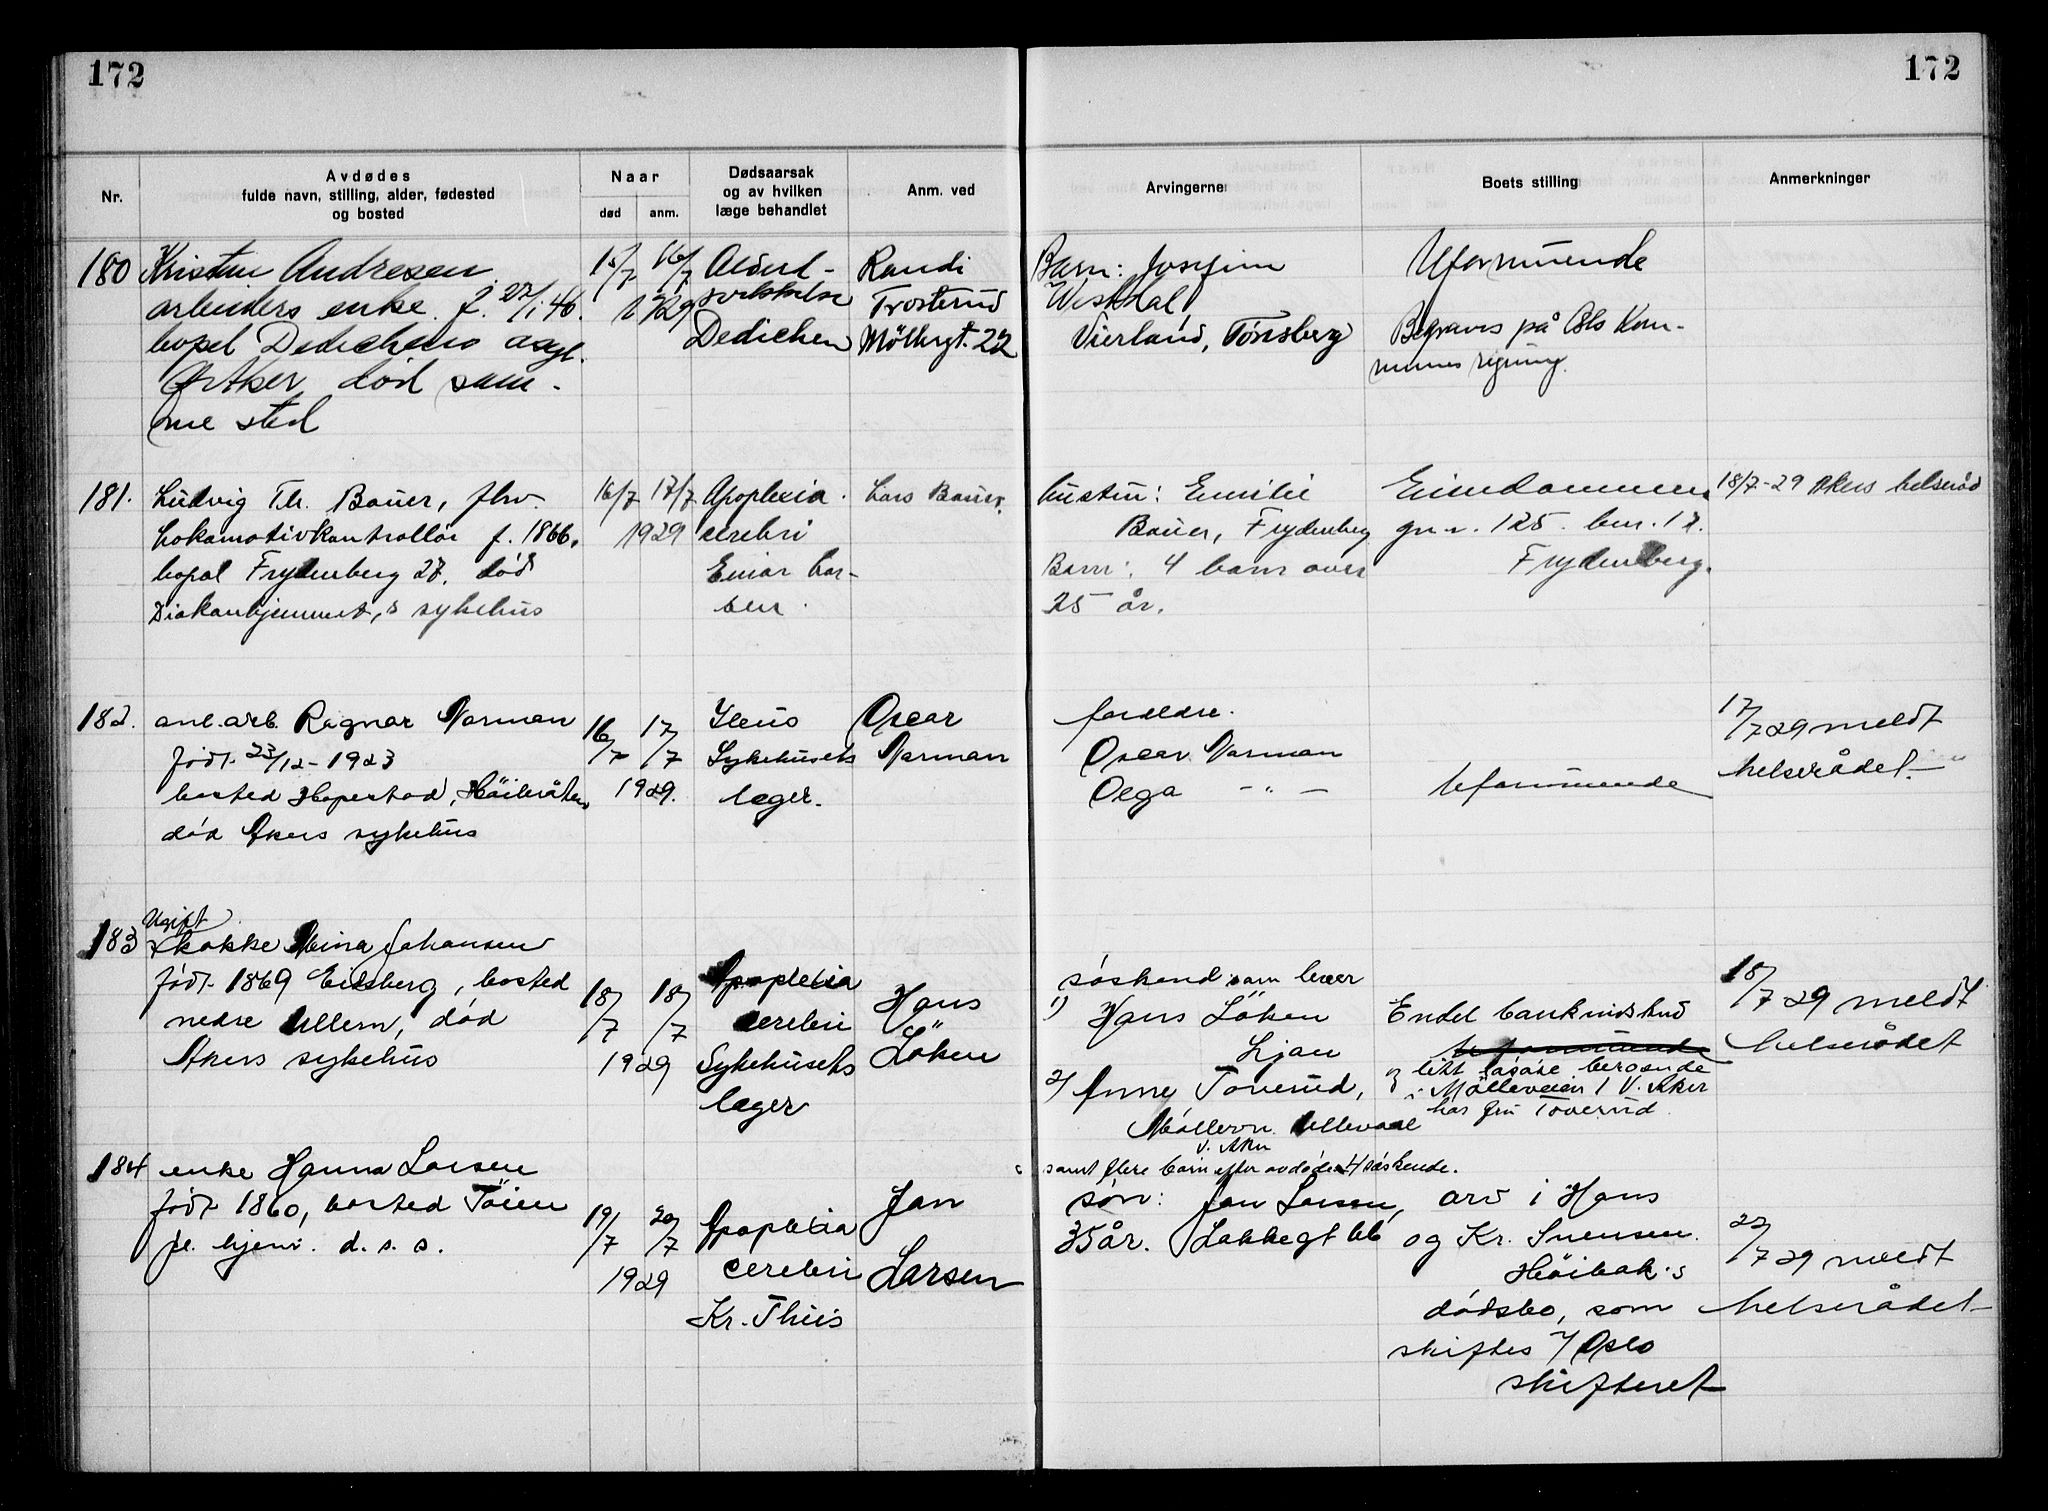 172
172
Nr.
Avdødes
fulde navn, stilling, alder, fødested
og bosted
Naar
død
anm.
Dødsaarsak
og av hvilken
læge behandlet
Anm. ved
Arvingerne
Boets stilling
Anmerkninger
180 Kristine Andresen
arbeiders enke. f. 27/1 46.
bopel Dedichens asyl.
Ø. Aker død sam-
me sted
15/7 16/7
1929
Alderd-
Dedichen
Randi
Trosterud
Möllergt. 22
Barn: Josefine
Westdal
Vierland, Tönsberg
Uformuende
Begraves på Oslo Kom-
munes regning.
181. Ludvig Th. Bauer, fhv.
Lokomotivkontrollör f. 1866.
bopal Frydenberg 27. död
Diakonhjemmet,s sykehus
16/7 17/7
1929
Apoplexia
cerebri
Einar
Lars Bauer.
hustru: Emilie
Bauer, Frydenberg
Barn: 4 barn over
25 år.
Eiendommen
gr.n. 125. bnr. 17.
Frydenberg.
18/7-29 Akers helseråd
182. anl.arb. Ragnar Norman
födt 23/12-1923
bosted Hopestad, Höibråten
död Akers sykehus
16/7 17/7
1929.
Ileus
Sykehusets
læger.
Oscar
Norman
foreldre.
Oscar Norman
Olga — " —
Uformuende
17/7 29 meldt
helserådet.
183 Ugift
kokke Mina Johansen
födt 1869 Eidsberg, bosted
nedre Ullern, död
Akers sykehus
18/7 18/7
1929
Apoplexia
cerebri
Sykehusets
læger
Hans
Löken
söskend som lever
1) Hans Löken
Ljan
2) Anne Toverud,
Möllervn. Ullevaal
V. Aker
samt flere barn efter avdöde 4 söskende.
Endel bankinskud
Uformuende
og litt lösöre beroende
i Mölleveien 1 V. Aker
hos fru Toverud
18/7 29 meldt
helserådet
184 enke Hanna Larsen
födt 1860, bosted Töien
hjem. d. s. s.
19/7 20/7
1929
Apoplexia
cerebri
Kr. Thiis
Jan
Larsen
sön: Jan Larsen,
35 år. Lakkegt 66
arv i Hans
og Kr. Svensen
Höibak's
dödsbo, som
skiftes v/ Oslo
skifteret
22/7 29 meldt
helserådet